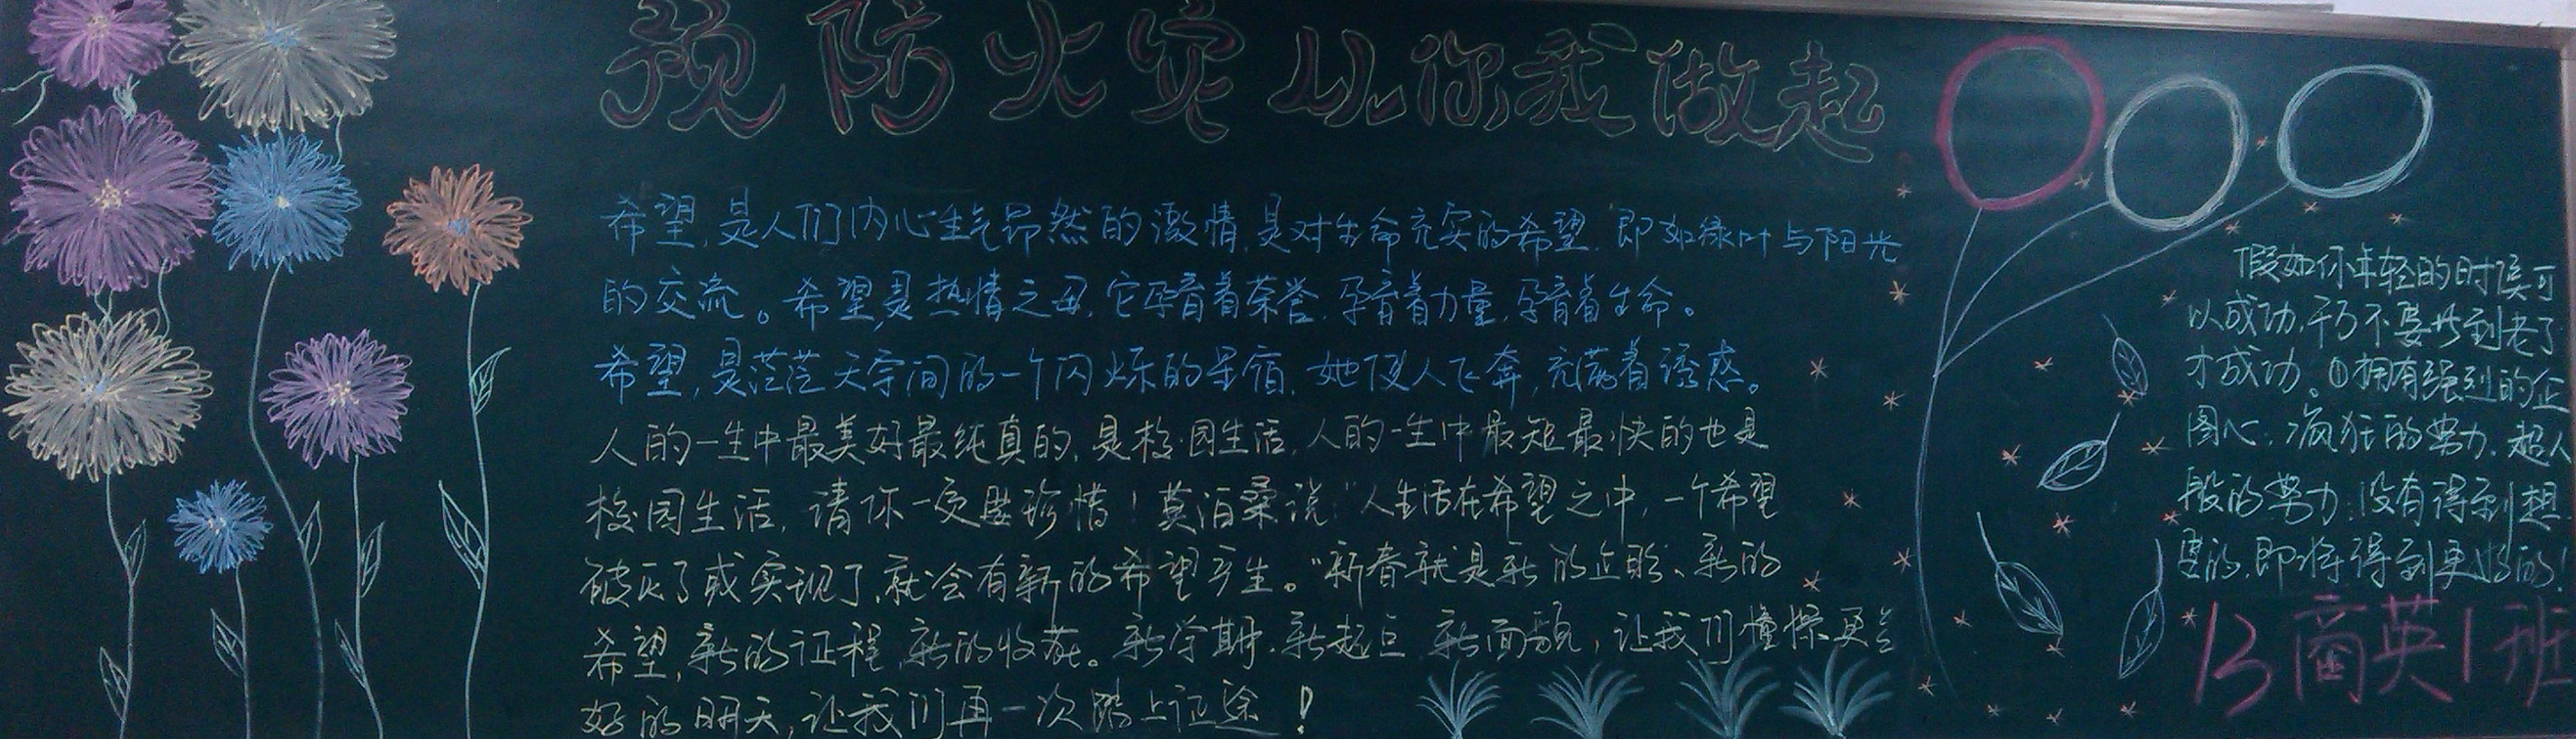 预防火灾从你我做起
希望,是人们内心生气昂然的激情,是对生命充实的希望,即如绿叶与阳光
的交流。希望,是热情之母,它孕育着荣誉,孕育着力量,孕育着生命。
希望,是茫茫天宇间的一个闪烁的星宿,她使人飞奔,充满着诱惑。
人的一生中最美好最纯真的,是校园生活,人的一生中最短最快的也是
校园生活,请你一定要珍惜!莫泊桑说:“人生活在希望之中,一个希望
破灭了或实现了,就会有新的希望产生。”新春就是新的企盼、新的
希望,新的征程,新的收获。新学期,新起点,新面貌,让我们憧憬更美
好的明天,让我们再一次踏上征途!
假如你年轻的时候可
以成功,千万不要等到老了
才成功。①拥有强烈的企
图心,疯狂的努力,超人
般的努力,没有得到想
要的,即将得到更好的!
13商英1班